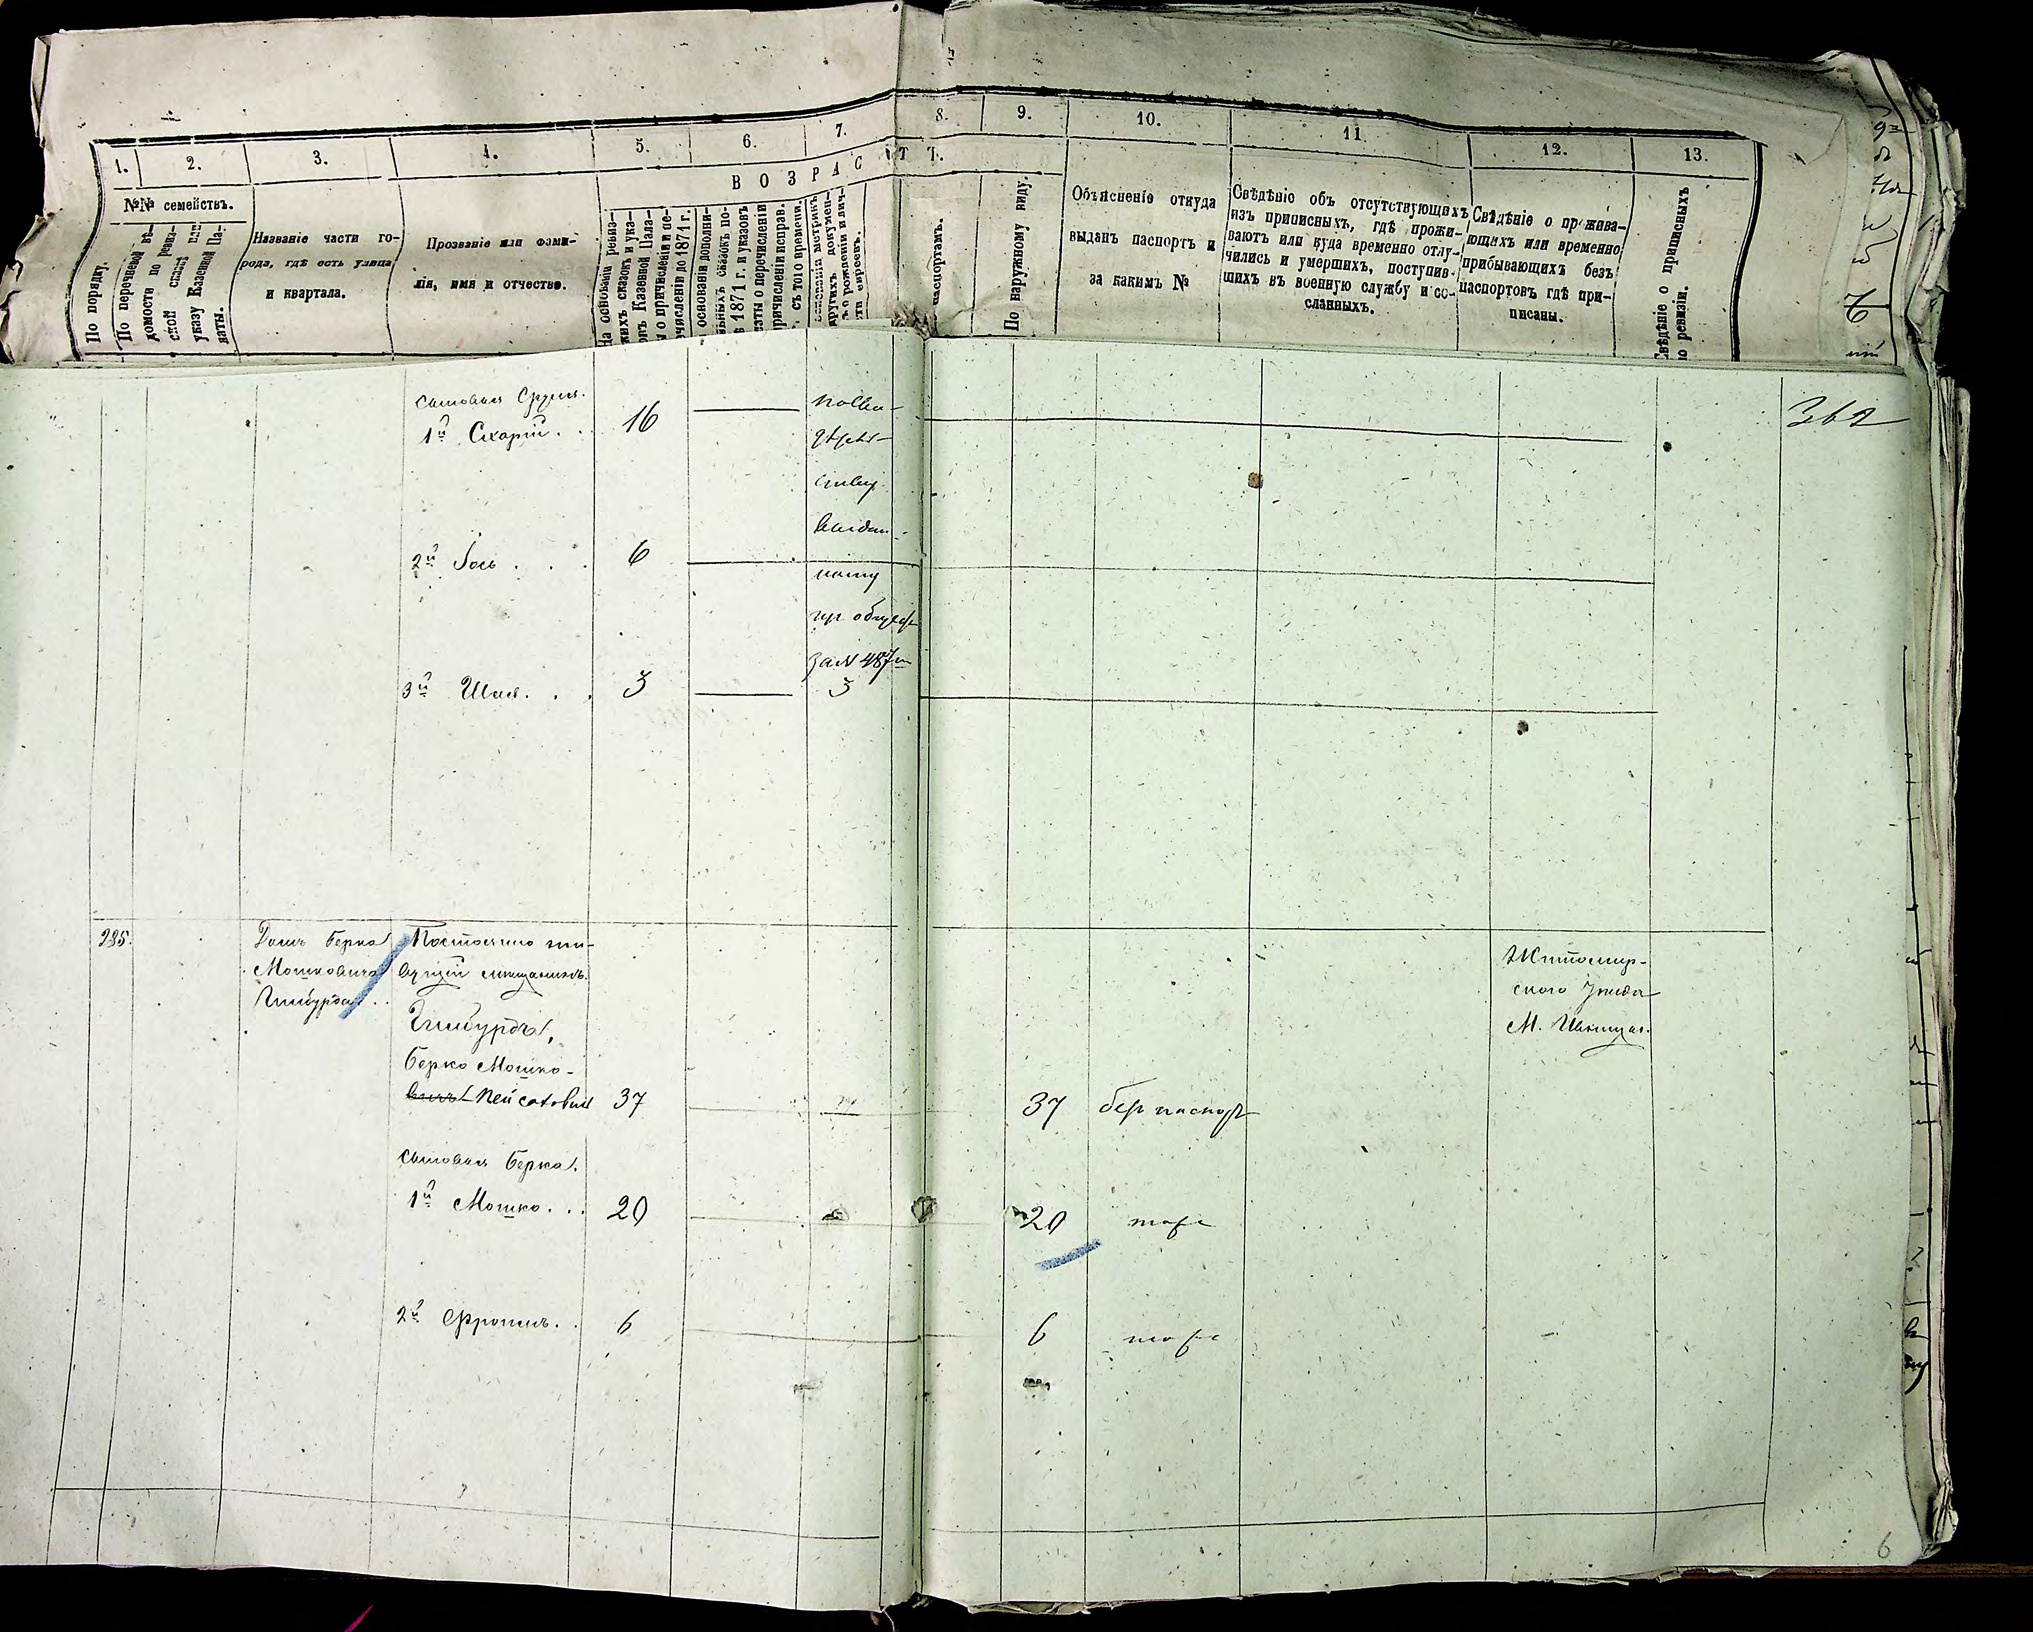 1.
2.
3.
4.
5.
6.
7.
8.
9.
10.
11
12.
13.
ВОЗРАСТ
№№ семействъ.
По порядку.
По перечневой вѣ-
домости по ревиз-
ской сказкѣ или
указу Казенной Па-
латы.
Названіе части го-
рода, гдѣ есть улица
и квартала.
Прозваніе или фами-
лія, имя и отчество.
На основаніи ревиз-
скихъ сказокъ и ука-
зовъ Казенной Пала-
ты о причисленіи и пе-
речисленіи до 1871 г.
основаніи дополни-
тельныхъ сказокъ по-
1871 г. и указовъ
Палаты о перечисленіи
причисленіи исправ.
съ того времени.
метрикъ
другихъ докумен-
о рожденіи и лич-
ности евреевъ.
паспортамъ.
По наружному виду.
Объясненіе откуда
выданъ паспортъ и
за какимъ №
Свѣдѣніе объ отсутствующихъ
изъ приписныхъ, гдѣ прожи-
ваютъ или куда временно отлу-
чились и умершихъ, поступив-
шихъ въ военную службу и со-
сланныхъ.
Свѣдѣніе о прожива-
ющихъ или временно
прибывающихъ безъ
паспортовъ гдѣ при-
писаны.
Свѣдѣніе о приписныхъ
по ревизіи.
сыновья
1й 16
2й 6
3й 3
за N 487м
3
285.
Домъ Берка
Мошковича
Гинбурга
Постоянно жи-
вущій мѣщанинъ
Гинбургъ,
Берко Мошко-
вичъ Пейсаховичъ 37 37 без паспорт
сыновья Берка.
1й Мошко 20 20 тоже
2й Фроимъ 6 6 тоже
Житомир-
ского уѣзда
М.
6